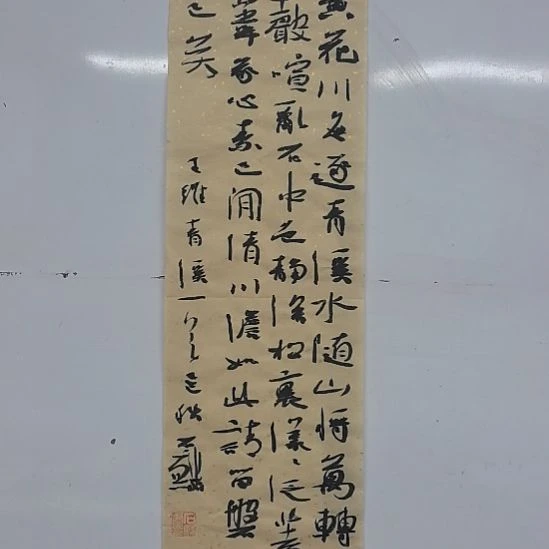 黄花川每逐青溪水隨山将萬轉
聲喧亂石中色静深松裏漾々泛
葦我心素已閒清川澹如此請留盤
已矣
王維青溪一首